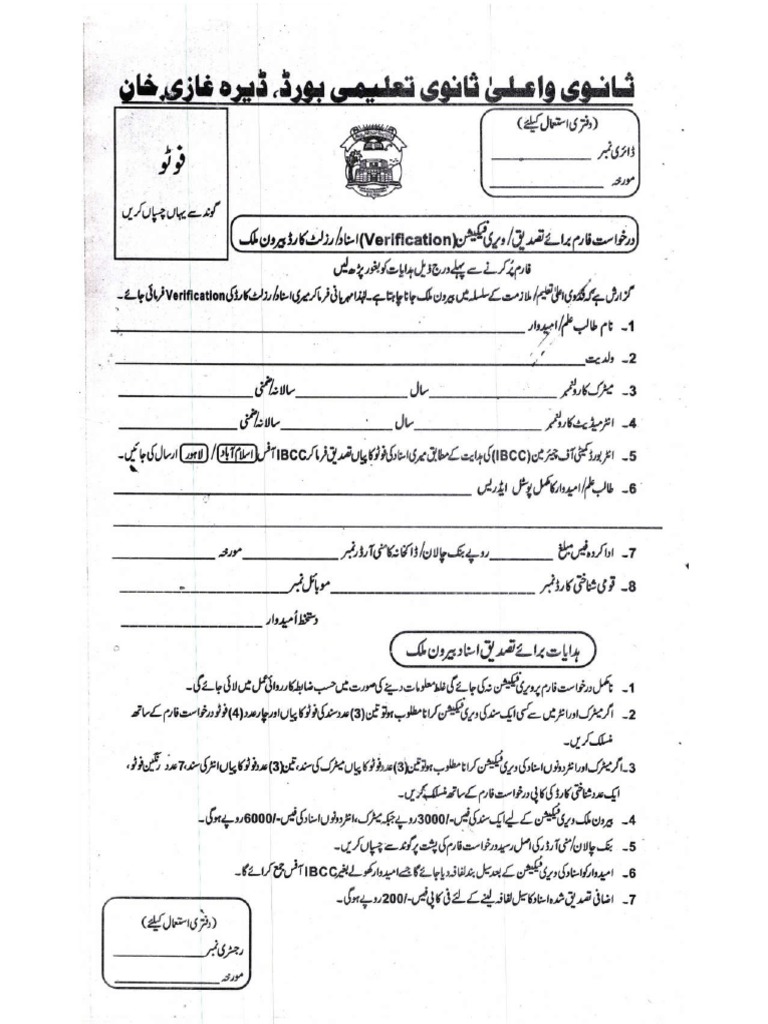 ثانوی و اعلیٰ ثانوی تعلیمی بورڈ، ڈیرہ غازی خان
(دفتری استعمال کیلئے)
ڈائری نمبر
مورخہ
فوٹو
گوند سے یہاں چسپاں کریں
درخواست فارم برائے تصدیق/ویری فیکیشن (Verification) اسناد/رزلٹ کارڈ بیرون ملک
فارم پُر کرنے سے پہلے درج ذیل ہدایات کو بغور پڑھ لیں
گزارش ہے کہ اعلیٰ تعلیم/ملازمت کے سلسلہ میں بیرون ملک جانا چاہتا ہے۔ لہٰذا مہربانی فرما کر میری اسناد/رزلٹ کارڈ کی Verification فرمائی جائے۔
1- نام طالب علم/امیدوار
2- ولدیت
3- میٹرک کا رولنمبر سال سالانہ/ضمنی
4- انٹرمیڈیٹ کا رولنمبر سال سالانہ/ضمنی
5- انٹر بورڈ کمیٹی آف چیئرمین (IBCC) کی ہدایت کے مطابق میری اسناد کی فوٹو کاپیاں تصدیق فرما کر IBCC آفس اسلام آباد / لاہور ارسال کی جائیں۔
6- طالب علم/امیدوار کا مکمل پوسٹل ایڈریس
7- ادا کردہ فیس مبلغ روپے بنک چالان/ڈاکخانہ کا منی آرڈر نمبر مورخہ
8- قومی شناختی کارڈ نمبر موبائل نمبر
دستخط اُمیدوار
ہدایات برائے تصدیق اسناد بیرون ملک
1- نامکمل درخواست فارم پر ویری فیکیشن نہ کی جائے گی غلط معلومات دینے کی صورت میں حسب ضابطہ کارروائی عمل میں لائی جائے گی۔
2- اگر میٹرک اور انٹر میں سے کسی ایک سند کی ویری فیکیشن کرانا مطلوب ہو تو تین (3) عدد سند کی فوٹو کاپیاں اور چار عدد (4) فوٹو درخواست فارم کے ساتھ
منسلک کریں۔
3- اگر میٹرک اور انٹر دونوں اسناد کی ویری فیکیشن کرانا مطلوب ہو تو تین (3) عدد فوٹو کاپیاں میٹرک کی سند، تین (3) عدد فوٹو کاپیاں انٹر کی سند، 7 عدد رنگین فوٹو،
ایک عدد شناختی کارڈ کی کاپی درخواست فارم کے ساتھ منسلک کریں۔
4- بیرون ملک ویری فیکیشن کے لیے ایک سند کی فیس -/3000 روپے جبکہ میٹرک، انٹر دونوں اسناد کی فیس -/6000 روپے ہوگی۔
5- بنک چالان/منی آرڈر کی اصل رسید درخواست فارم کی پشت پر گوند سے چسپاں کریں۔
6- امیدوار کو اسناد کی ویری فیکیشن کے بعد سیل بند لفافہ دیا جائے گا جسے امیدوار کھولے بغیر IBCC آفس جمع کرائے گا۔
7- اضافی تصدیق شدہ اسناد کا سیل لفافہ لینے کے لئے فی کاپی فیس -/200 روپے ہوگی۔
(دفتری استعمال کیلئے)
رجسٹری نمبر
مورخہ